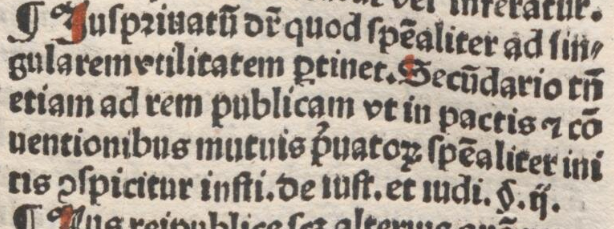 vel inferatur.
¶ Iuspriuatū dr̄ quod spēaliter ad sin⸗
gularem vtilitatem ꝑtinet. Secūdario tn̄
etiam ad rem publicam vt in pactis ⁊ cō
uentionibus mutuis p̄uatoꝝ spēaliter ini
tis ꝯspicitur insti. de iust. et iudi. §. ij.
¶ Ius reipublice